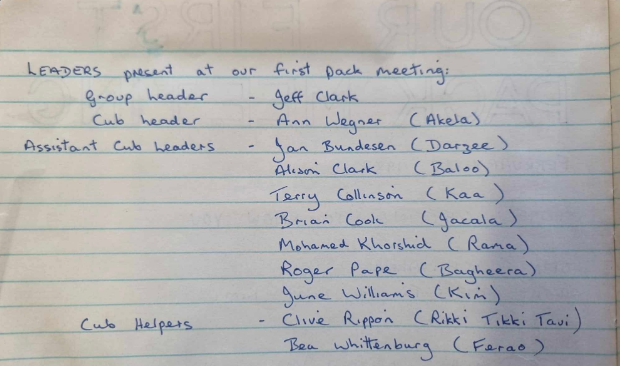 LEADERS present at our first pack meeting:
Group Leader - Jeff Clark
Cub Leader - Ann Wegner (Akela)
Assistant Cub Leaders - Jan Bundesen (Darzee)
Alison Clark (Baloo)
Terry Collinson (Kaa)
Brian Cook (Jacala)
Mohamed Khorshid (Rama)
Roger Pape (Bagheera)
June Williams (Kim)
Cub Helpers - Clive Rippon (Rikki Tikki Tavi)
Bea Whittenburg (Ferao)